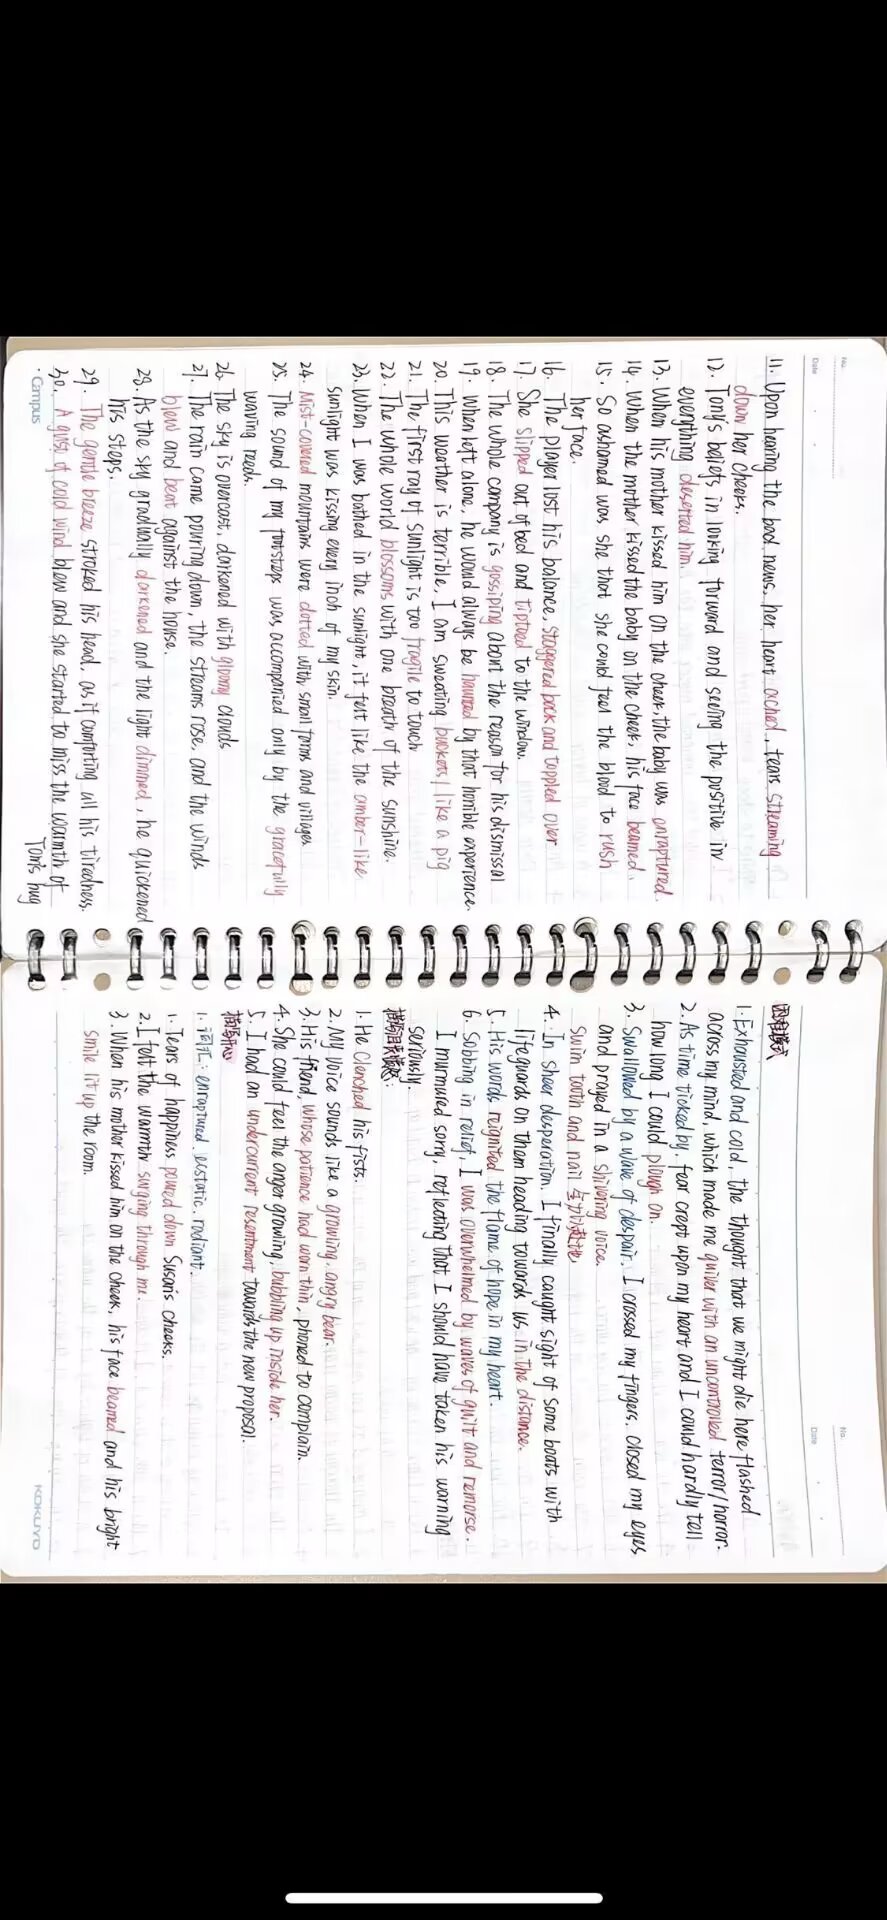 No.
Date
11. Upon hearing the bad news, her heart ached, tears streaming
down her cheeks.
12. Tony's beliefs in looking forward and seeing the positive in
everything deserted him.
13. When his mother kissed him on the cheek, the baby was enraptured.
14. When the mother kissed the baby on the cheek, his face beamed.
15. So ashamed was she that she could feel the blood to rush
her face.
16. The player lost his balance, staggered back and toppled over
17. She slipped out of bed and tiptoed to the window.
18. The whole company is gossiping about the reason for his dismissal
19. When left alone, he would always be haunted by that horrible experience.
20. This weather is terrible, I am sweating buckets / like a pig
21. The first ray of sunlight is too fragile to touch
22. The whole world blossoms with one breath of the sunshine.
23. When I was bathed in the sunlight, it felt like the amber-like
sunlight was kissing every inch of my skin.
24. Mist-covered mountains were dotted with small farms and villages
25. The sound of my footsteps was accompanied only by the gracefully
waving reeds.
26. The sky is overcast, darkened with gloomy clouds
27. The rain came pouring down, the streams rose, and the winds
blew and beat against the house.
28. As the sky gradually darkened and the light dimmed, he quickened
his steps.
29. The gentle breeze stroked his head, as if comforting all his tiredness.
30. A gust of cold wind blew and she started to miss the warmth of
Tom's hug
Campus
No.
Date
1. Exhausted and cold, the thought that we might die here flashed
across my mind, which made me quiver with an uncontrolled terror/horror.
2. As time ticked by, fear crept upon my heart and I could hardly tell
how long I could plough on.
3. Swallowed by a wave of despair, I crossed my fingers, closed my eyes
and prayed in a shivering voice.
swim tooth and nail
4. In sheer desperation, I finally caught sight of some boats with
lifeguards on them heading towards us in the distance.
5. His words reignited the flame of hope in my heart.
6. Sobbing in relief, I was overwhelmed by waves of guilt and remorse.
I murmured sorry, reflecting that I should have taken his warning
seriously.
1. He clenched his fists.
2. My voice sounds like a growling, angry bear.
3. His friend, whose patience had worn thin, phoned to complain.
4. She could feel the anger growling, bubbling up inside her.
5. I had an undercurrent resentment towards the new proposal.
描写开心
1. 词汇: enraptured. ecstatic. radiant.
1. Tears of happiness poured down Susan's cheeks.
2. I felt the warmth surging through me.
3. When his mother kissed him on the cheek, his face beamed and his bright
smile lit up the room.
KOKUYO